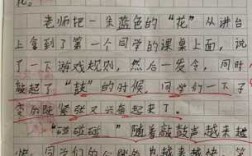 花。
老师把一朵蓝色的“花”从讲台
上拿到了第一个同学的课桌上面，说
了一下游戏规则，然后一发令，同时
敲起了“鼓”的时候，同学们一下子
变的
起来了。
“咚咚咚”随着敲鼓声越来越
同学们的
越来越